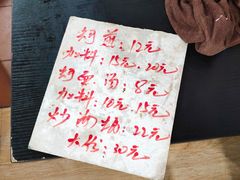 蚵煎:12元
加料:15元.20元
蚵蛋汤:8元
加料:10元.15元
炒面粉:22元
大份:30元